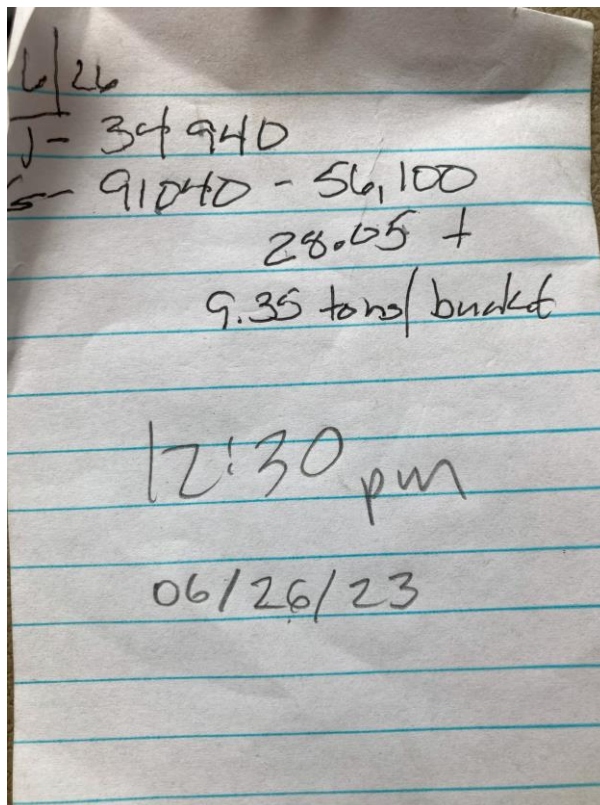 6/26
J- 34940
S- 91040 - 56,100
28.05 t
9.35 tons/bucket
12:30 pm
06/26/23